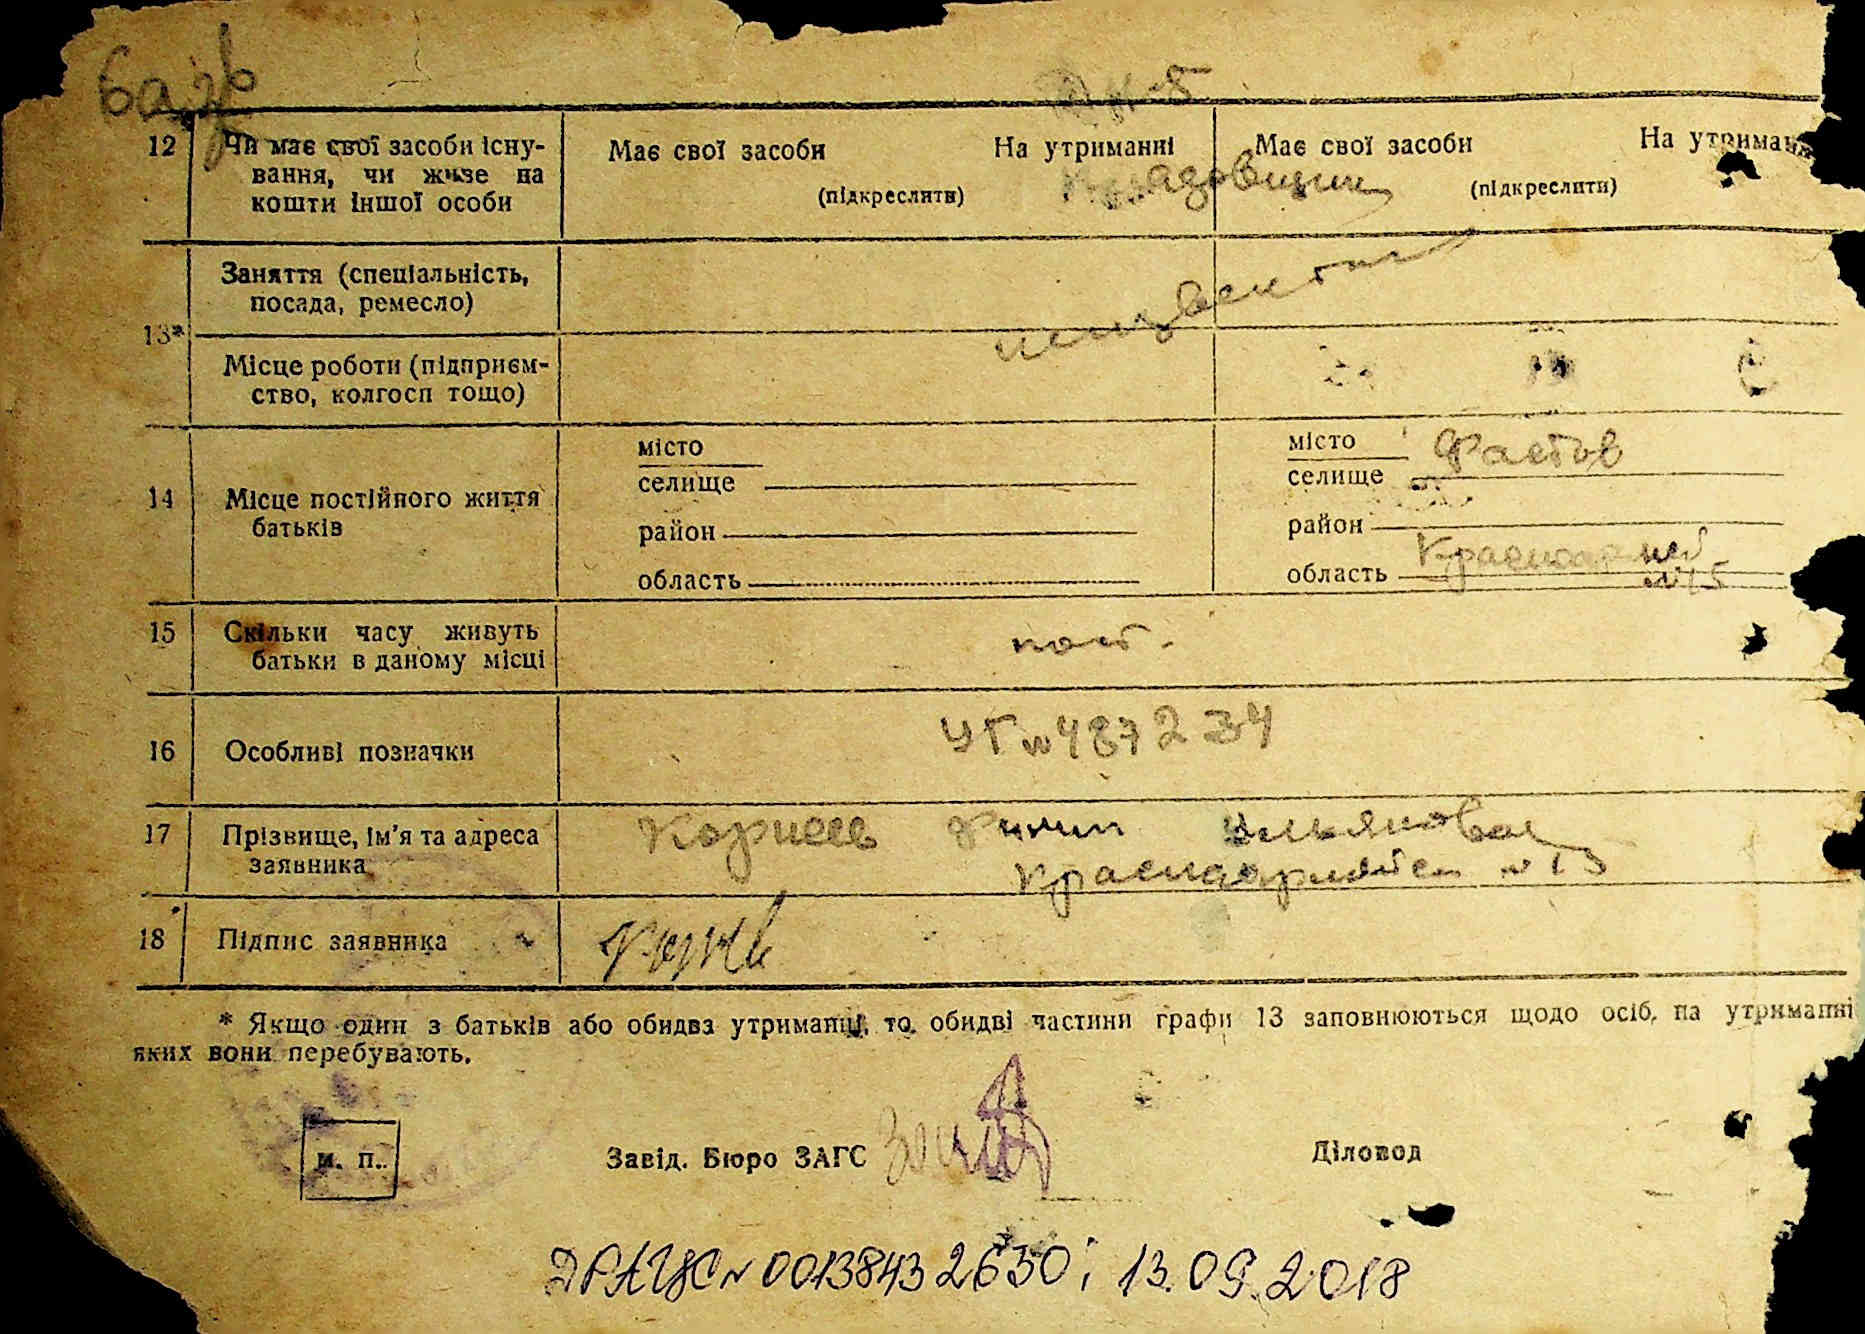 12 Чи має свої засоби існу-
вання, чи живе на
кошти іншої особи
Має свої засоби На утриманні
(підкреслити)
Має свої засоби На утриманні
(підкреслити)
Заняття (спеціальність,
посада, ремесло)
13*
Місце роботи (підприєм-
ство, колгосп тощо)
14 Місце постійного життя
батьків
місто
селище
район
область
місто Фастов
селище
район
область
15 Скільки часу живуть
батьки в даному місці
пост.
16 Особливі позначки
УГ № 487234
17 Прізвище, ім'я та адреса
заявника
Корнеев
Красноармейск № 15
18 Підпис заявника
* Якщо один з батьків або обидва утриманці, то обидві частини графи 13 заповнюються щодо осіб, на утриманні
яких вони перебувають.
м. п.
Завід. Бюро ЗАГС
Діловод
ДРАЦС № 00138432630; 13.09.2018